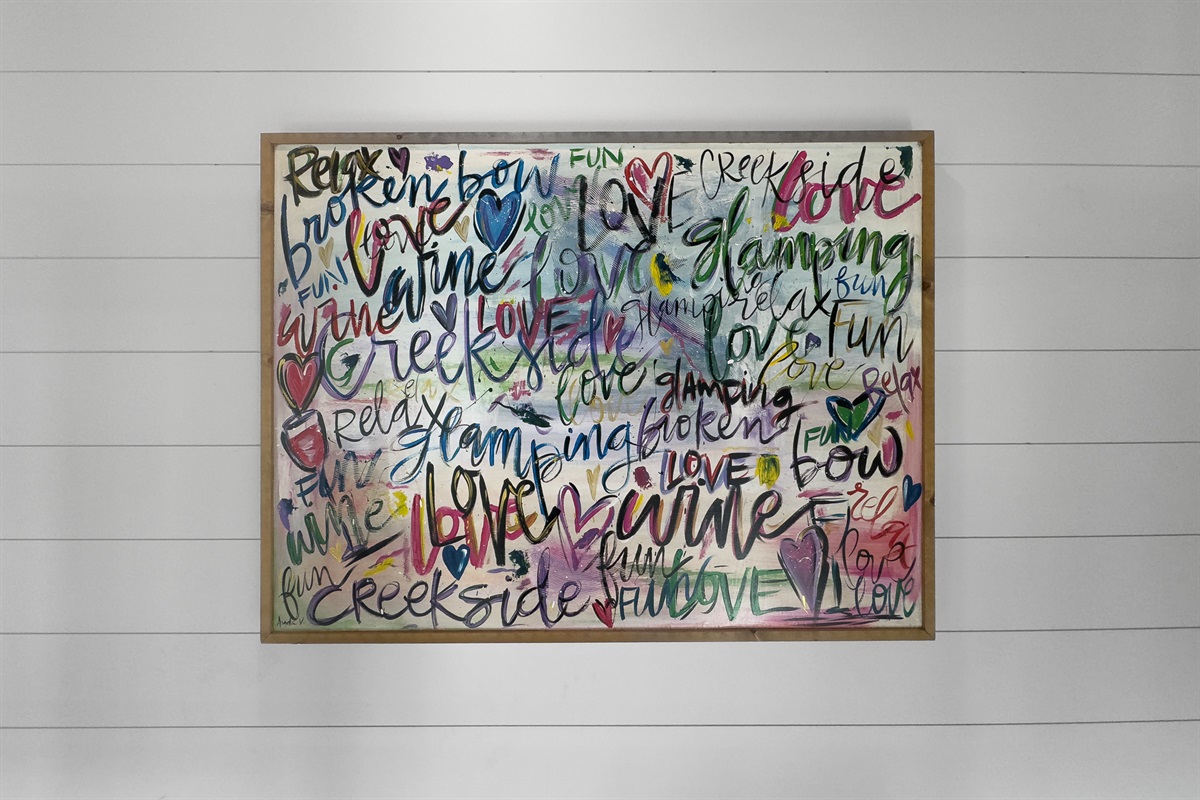 Relax FUN Creekside
broken bow LOVE love
love love love glamping
FUN wine love relax fun
wine LOVE glamping Fun
Creekside love
love glamping love Relax
Relax glamping broken FUN
FUN LOVE bow
wine Love wine relax
fun love
fun Creekside FUN LOVE love